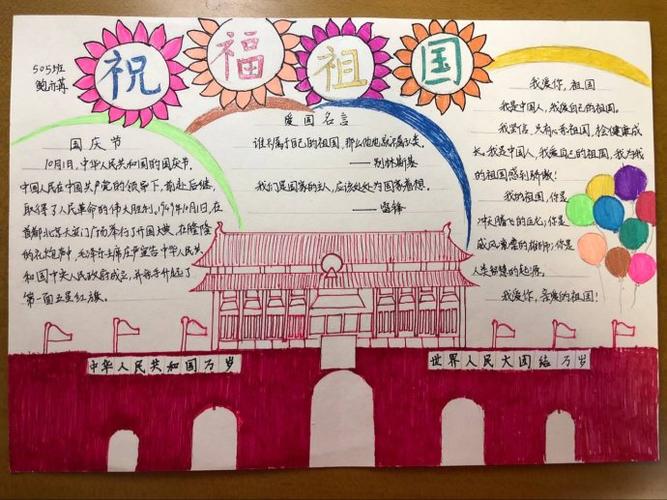 祝福祖国
505班
鲍亦苒
国庆节
10月1日,中华人民共和国的国庆节。
中国人民在中国共产党的领导下,前赴后继,
取得了人民革命的伟大胜利。1949年10月1日,在
首都北京天安门广场举行了开国大典,在隆隆
的礼炮声中,毛泽东主席庄严宣告中华人民共
和国中央人民政府成立,并亲手升起了
第一面五星红旗。
爱国名言
谁不属于自己的祖国,那么他也就不属于人类。
——别林斯基
我们是国家的主人,应该处处为国家着想。
——雷锋
我爱你,祖国
我是中国人,我爱自己的祖国。
我坚信,大树心系祖国,检健康成
长。我是中国人,我爱自己的祖国,我为我
的祖国感到骄傲!
我的祖国,你是
冲天腾飞的巨龙;你是
威风凛凛的雄狮;你是
人类智慧的起源。
我爱你,亲爱的祖国!
中华人民共和国万岁
世界人民大团结万岁